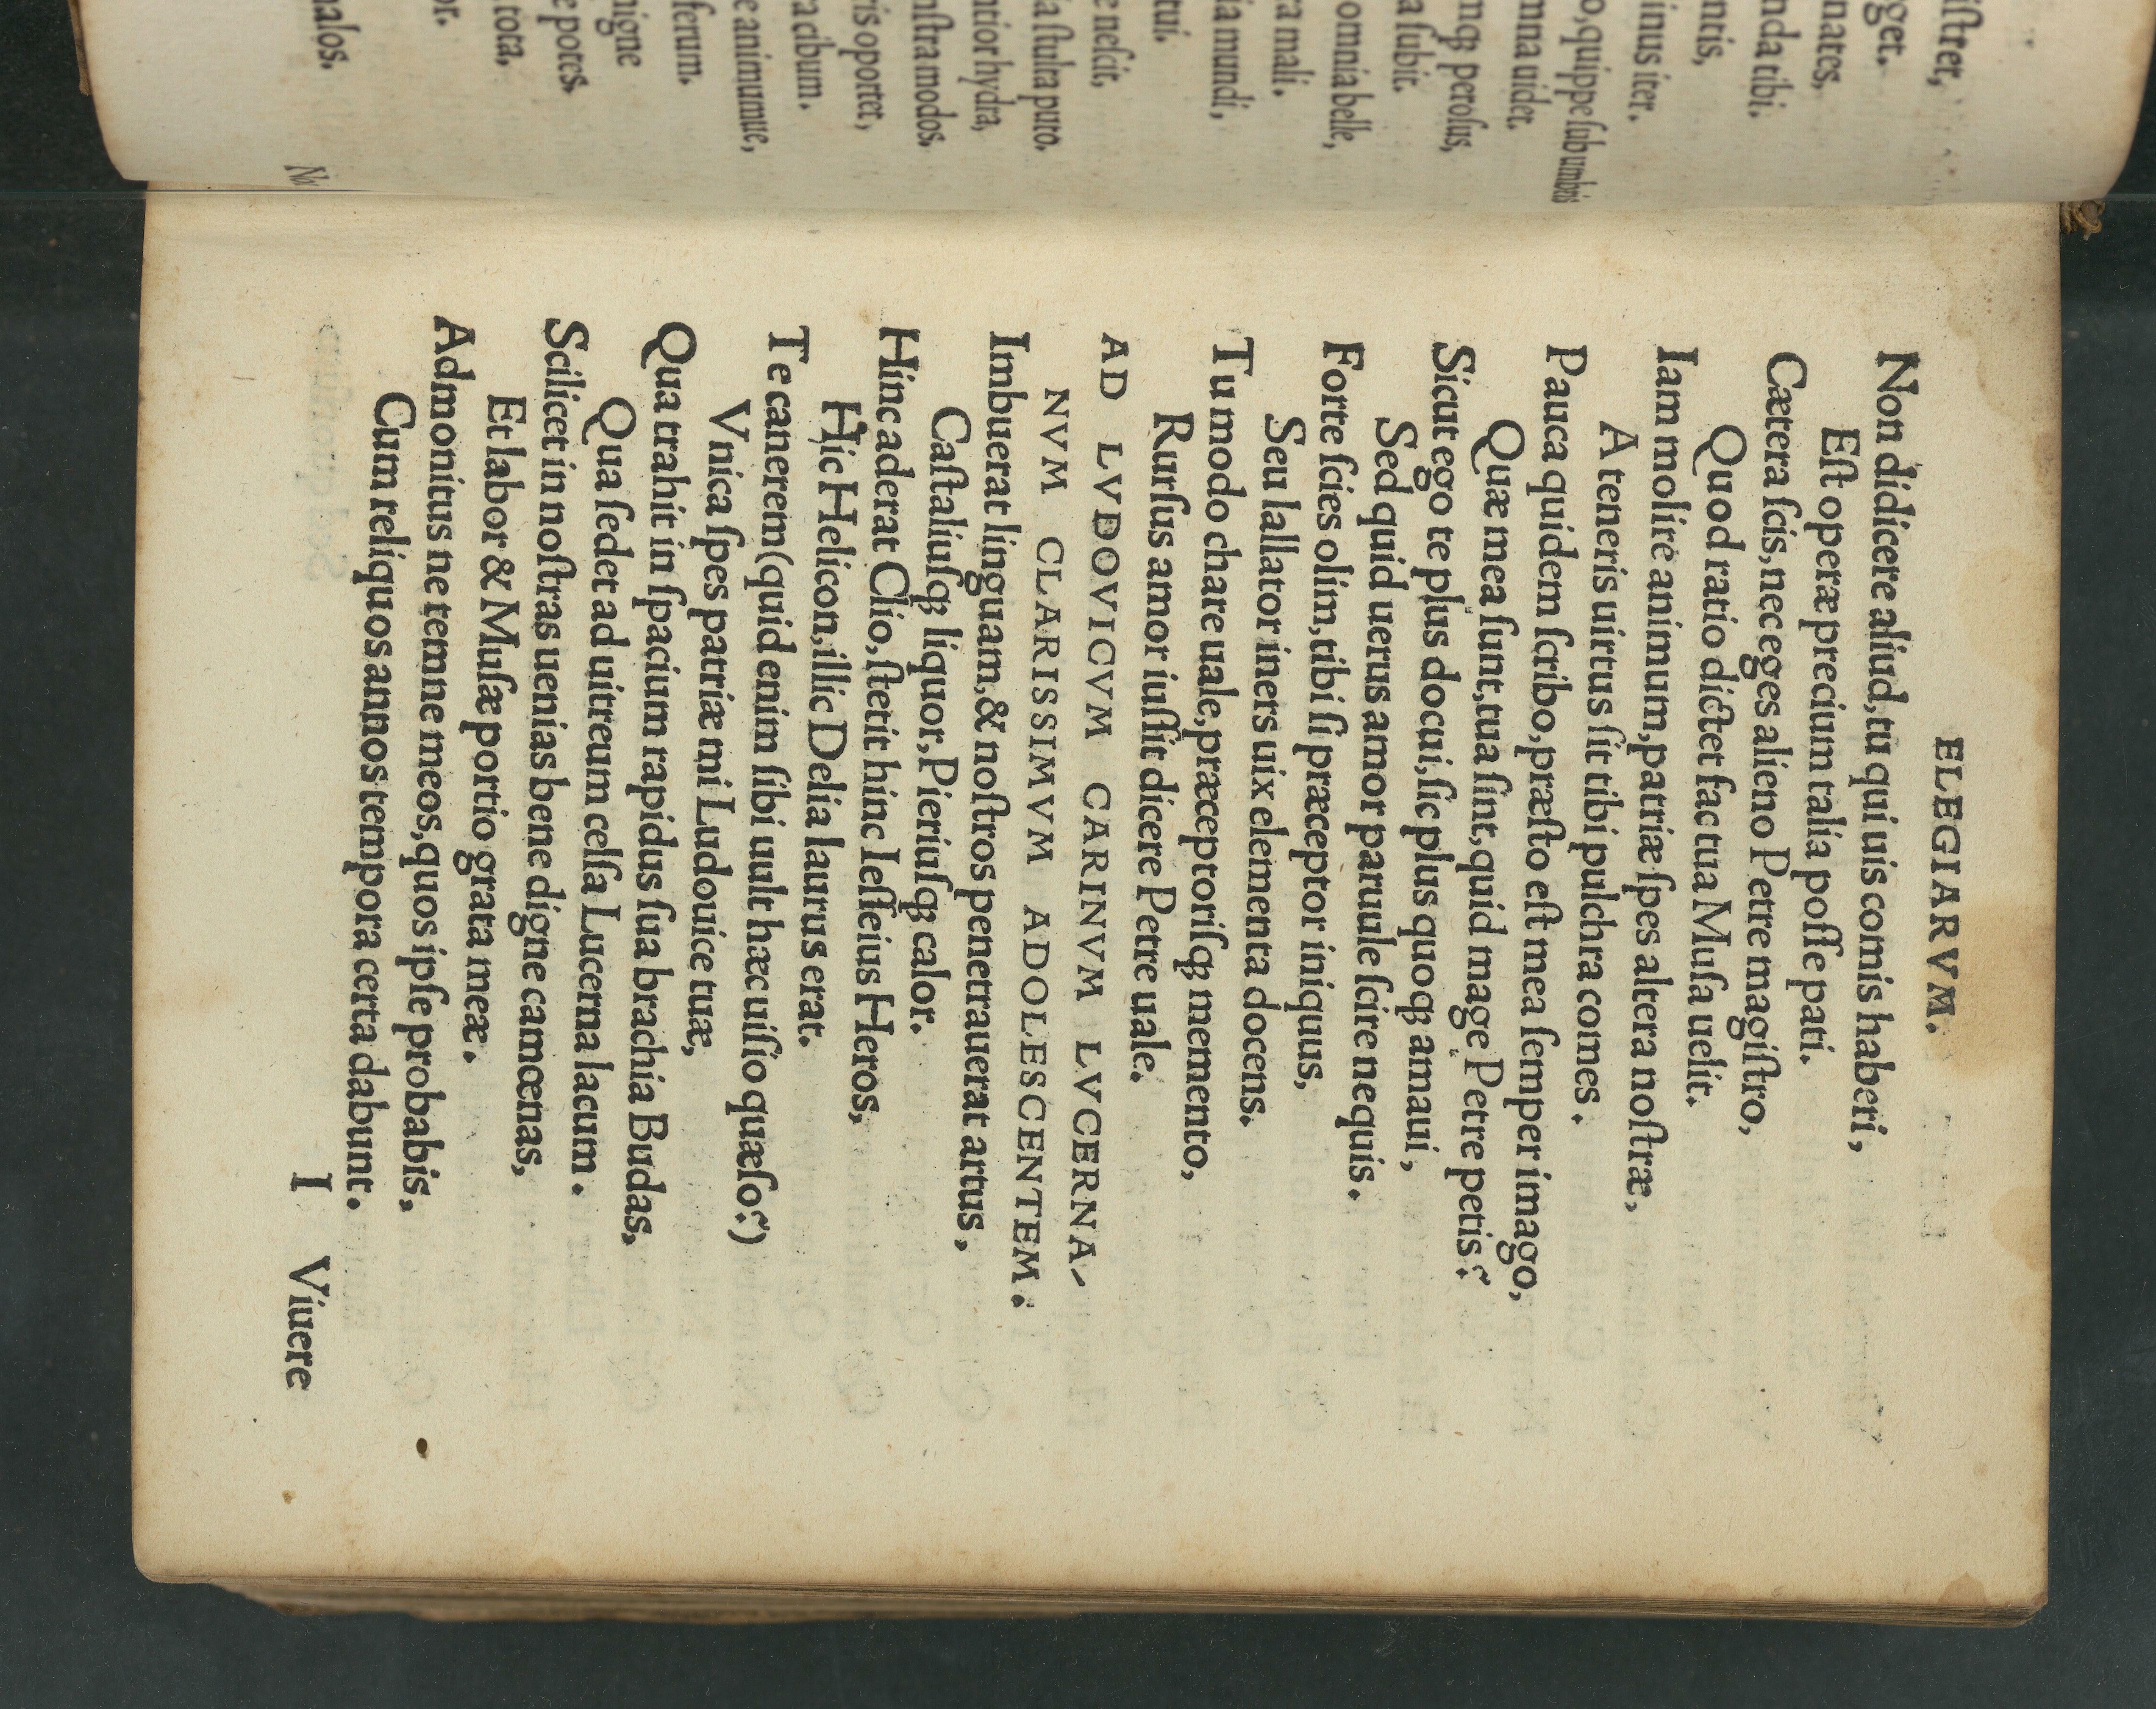 iſtrer,
gget.
nates,
nda tibi.
ntis,
inus iter.
o, quippe ſub umbris
mna uider.
mqꝫ peroſus,
a ſubit.
omnia belle,
ra mali.
ia mundi,
tui.
e neſcit,
ia ſtulta puto.
ntior hydra,
nſtra modos.
ris oportet,
ra cibum.
e animumue,
ferum.
nigne
e potes.
tota,
or.
nalos.
ELEGIARVM.
Non didicere aliud, tu qui uis comis haberi,
Eſt operæ precium talia poſſe pati.
Cætera ſcis, nec eges alieno Petre magiſtro,
Quod ratio dictet fac tua Muſa uelit.
Iam molire animum, patriæ ſpes altera noſtræ,
A teneris uirtus ſit tibi pulchra comes.
Pauca quidem ſcribo, præſto eſt mea ſemper imago,
Quæ mea ſunt, tua ſint, quid mage Petre petis?
Sicut ego te plus docui, ſic plus quoqꝫ amaui,
Sed quid uerus amor paruule ſcire nequis.
Forte ſcies olim, tibi ſi præceptor iniquus,
Seu lallator iners uix elementa docens.
Tu modo chare uale, præceptoriſqꝫ memento,
Rurſus amor iuſſit dicere Petre uale.
AD LVDOVICVM CARINVM LVCERNA-
NVM CLARISSIMVM ADOLESCENTEM.
Imbuerat linguam, & noſtros penetrauerat artus,
Caſtaliuſqꝫ liquor, Pieriuſqꝫ calor.
Hinc aderat Clio, ſtetit hinc Ieſſeius Heros,
Hic Helicon, illic Delia laurus erat.
Te canerem (quid enim ſibi uult hæc uiſio quæſo?)
Vnica ſpes patriæ mi Ludouice tuæ,
Qua trahit in ſpacium rapidus ſua brachia Budas,
Qua ſedet ad uitreum celſa Lucerna lacum.
Scilicet in noſtras uenias bene digne camœnas,
Et labor & Muſæ portio grata meæ.
Admonitus ne temne meos, quos ipſe probabis,
Cum reliquos annos tempora certa dabunt.
I Viuere